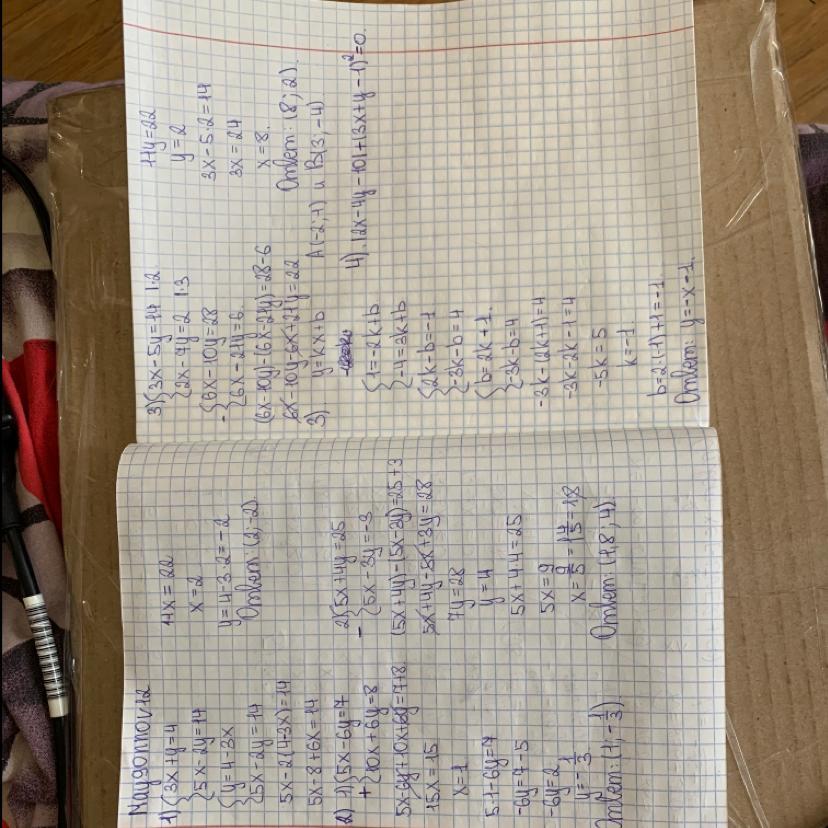 1) {3x+y=4
{5x-2y=14
{y=4-3x
{5x-2y=14
5x-2(4-3x)=14
5x-8+6x=14
11x=22
x=2
y=4-3·2=-2
Ответ: (2;-2)
2) 1) {5x-6y=7
+ {10x+6y=8
5x-6y+10x+6y=7+8
15x=15
x=1
5·1-6y=7
-6y=7-5
-6y=2
y=-1/3
Ответ: (1; -1/3)
2) {5x+4y=25
- {5x-3y=-3
(5x+4y)-(5x-3y)=25+3
5x+4y-5x+3y=28
7y=28
y=4
5x+4·4=25
5x=9
x=9/5=1 4/5=1,8
Ответ: (1,8; 4)
3) {3x-5y=14 |·2
{2x-7y=2 |·3
- {6x-10y=28
{6x-21y=6
(6x-10y)-(6x-21y)=28-6
6x-10y-6x+21y=22
11y=22
y=2
3x-5·2=14
3x=24
x=8.
Ответ: (8; 2).
3). y=kx+b A(-2;1) и B(3;-4)
{1=-2k+b
{-4=3k+b
{2k-b=-1
{-3k-b=4
{b=2k+1.
{-3k-b=4
-3k-(2k+1)=4
-3k-2k-1=4
-5k=5
k=-1.
b=2·(-1)+1=-1.
Ответ: y=-x-1.
4). |2x-4y-10|+(3x+y-1)²=0.